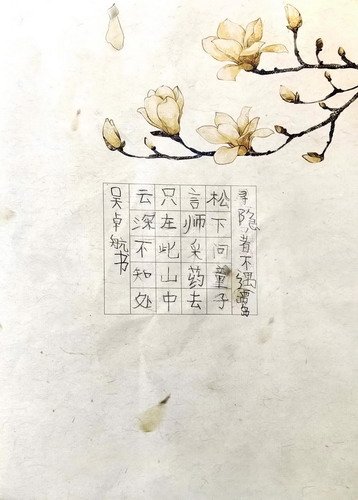 寻隐者不遇 贾岛
松下问童子
言师采药去
只在此山中
云深不知处
吴卓航书